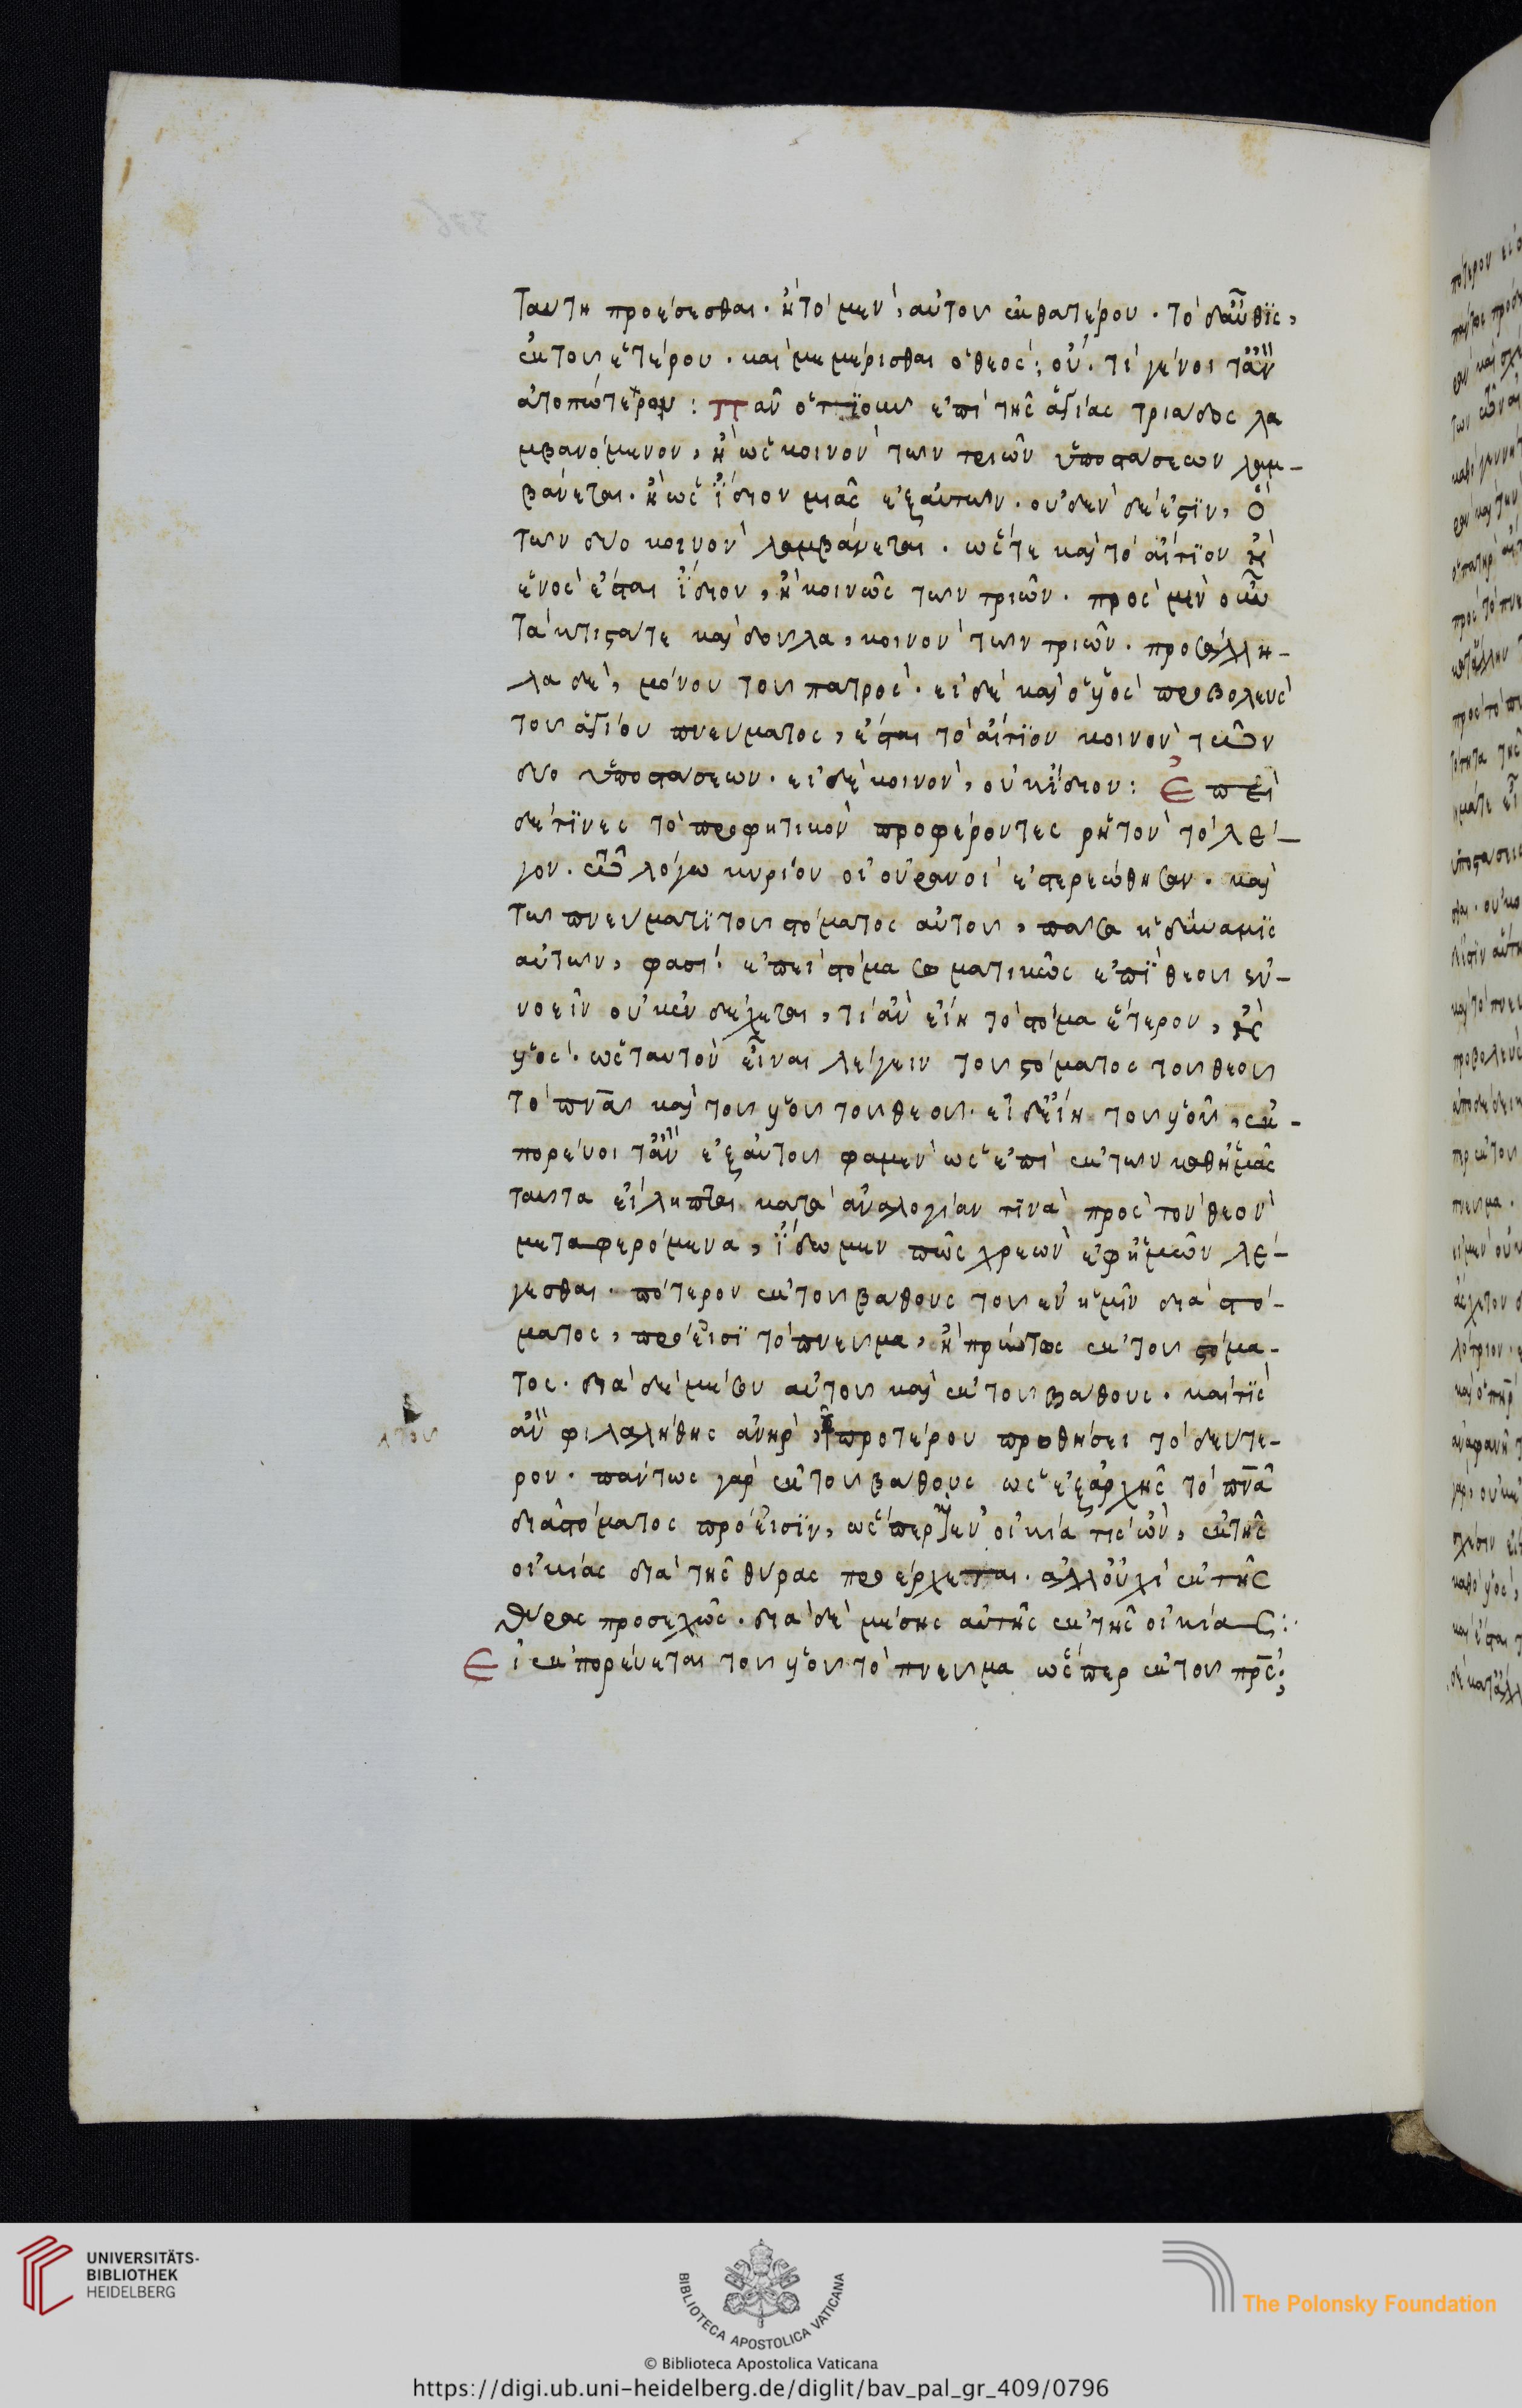 ταύτη προέσεσθαι. ἢ τὸ μὲν, αὐτοῦ ἐκ θατέρου. τὸ δ' αὖθις,
ἐκ τοῦ ἑτέρου. καὶ μεμερίσθαι ὁ θεός; οὗ. τί γένοιτ' ἂν
ἀτοπώτερον: Πᾶν ὁτιοῦν ἐπὶ τῆς ἁγίας τριάδος λα
μβανόμενον, ἢ ὡς κοινὸν τῶν τριῶν ὑποστάσεων λαμ-
βάνεται. ἢ ὡς ἴδιον μιᾶς ἐξ αὐτῶν. οὐδὲν δέ ἐστιν, ὃ
τῶν δύο κοινὸν λαμβάνεται. ὥστε καὶ τὸ αἴτιον ἢ
ἑνὸς ἔσται ἴδιον, ἢ κοινῶς τῶν τριῶν. πρὸς μὲν οὖν
τὰ κτιστά τε καὶ δοῦλα, κοινὸν τῶν τριῶν. πρὸς ἄλλη-
λα δὲ, μόνου τοῦ πατρός. εἰ δὲ καὶ ὁ υἱὸς προβολεὺς
τοῦ ἁγίου πνεύματος, ἔσται τὸ αἴτιον κοινὸν τῶν
δύο ὑποστάσεων. εἰ δὲ κοινὸν, οὐκ ἴδιον: Ἐπεὶ
δέ τινες τὸ προφητικὸν προφέροντες ῥητὸν τὸ λέ-
γον. τῶ λόγω κυρίου οἱ οὐρανοὶ ἐστερεώθησαν. καὶ
τῶ πνεύματι τοῦ στόματος αὐτοῦ, πᾶσα ἡ δύναμις
αὐτῶν, φασί. ἐπεὶ στόμα σωματικῶς ἐπὶ θεοῦ ἐν-
νοεῖν οὐκ ἐνδέχεται, τί ἂν εἴη τὸ στόμα ἕτερον, ἢ
υἱός. ὡς ταυτὸν εἶναι λέγειν τοῦ στόματος τοῦ θεοῦ
τὸ πνᾶ καὶ τοῦ υἱοῦ τοῦ θεοῦ. εἰ δ' εἴη τοῦ υἱοῦ, ἐκ-
πορεύοιτ' ἂν ἐξ αὐτοῦ φαμὲν ὡς ἐπεὶ ἐκ τῶν καθ' ἡμᾶς
ταῦτα εἴληπται κατὰ ἀναλογίαν τινὰ πρὸς τὸν θεὸν
μεταφερόμενα, ἴδωμεν πῶς χρεὼν ἐφ' ἡμῶν λέ-
γεσθαι. πότερον ἐκ τοῦ βάθους τοῦ ἐν ἡμῖν διὰ στό-
ματος, πρόεισι τὸ πνεῦμα, ἢ πρώτως ἐκ τοῦ στόμα-
τος. διὰ δὲ μέσου αὐτοῦ καὶ ἐκ τοῦ βάθους. καὶ τίς
ἂν φιλαλήθης ἀνὴρ, προτέρου προθήσει τὸ δεύτε-
ρον. πάντως γὰρ ἐκ τοῦ βάθους ὡς ἐξ ἀρχῆς τὸ πνᾶ
διὰ στόματος πρόεισιν, ὥσπερ ἐν οἰκία τὶς ὢν, ἐκ τῆς
οἰκίας διὰ τῆς θύρας προέρχεται. ἀλλ' οὐχὶ ἐκ τῆς
θύρας προσεχῶς. διὰ δὲ μέσης αὐτῆς ἐκ τῆς οἰκίας:
Εἰ ἐκπορεύεται τοῦ υἱοῦ τὸ πνεῦμα ὥσπερ ἐκ τοῦ πρς;
UNIVERSITÄTS-
BIBLIOTHEK
HEIDELBERG
BIBLIOTECA APOSTOLICA VATICANA
The Polonsky Foundation
© Biblioteca Apostolica Vaticana
https://digi.ub.uni-heidelberg.de/diglit/bav_pal_gr_409/0796